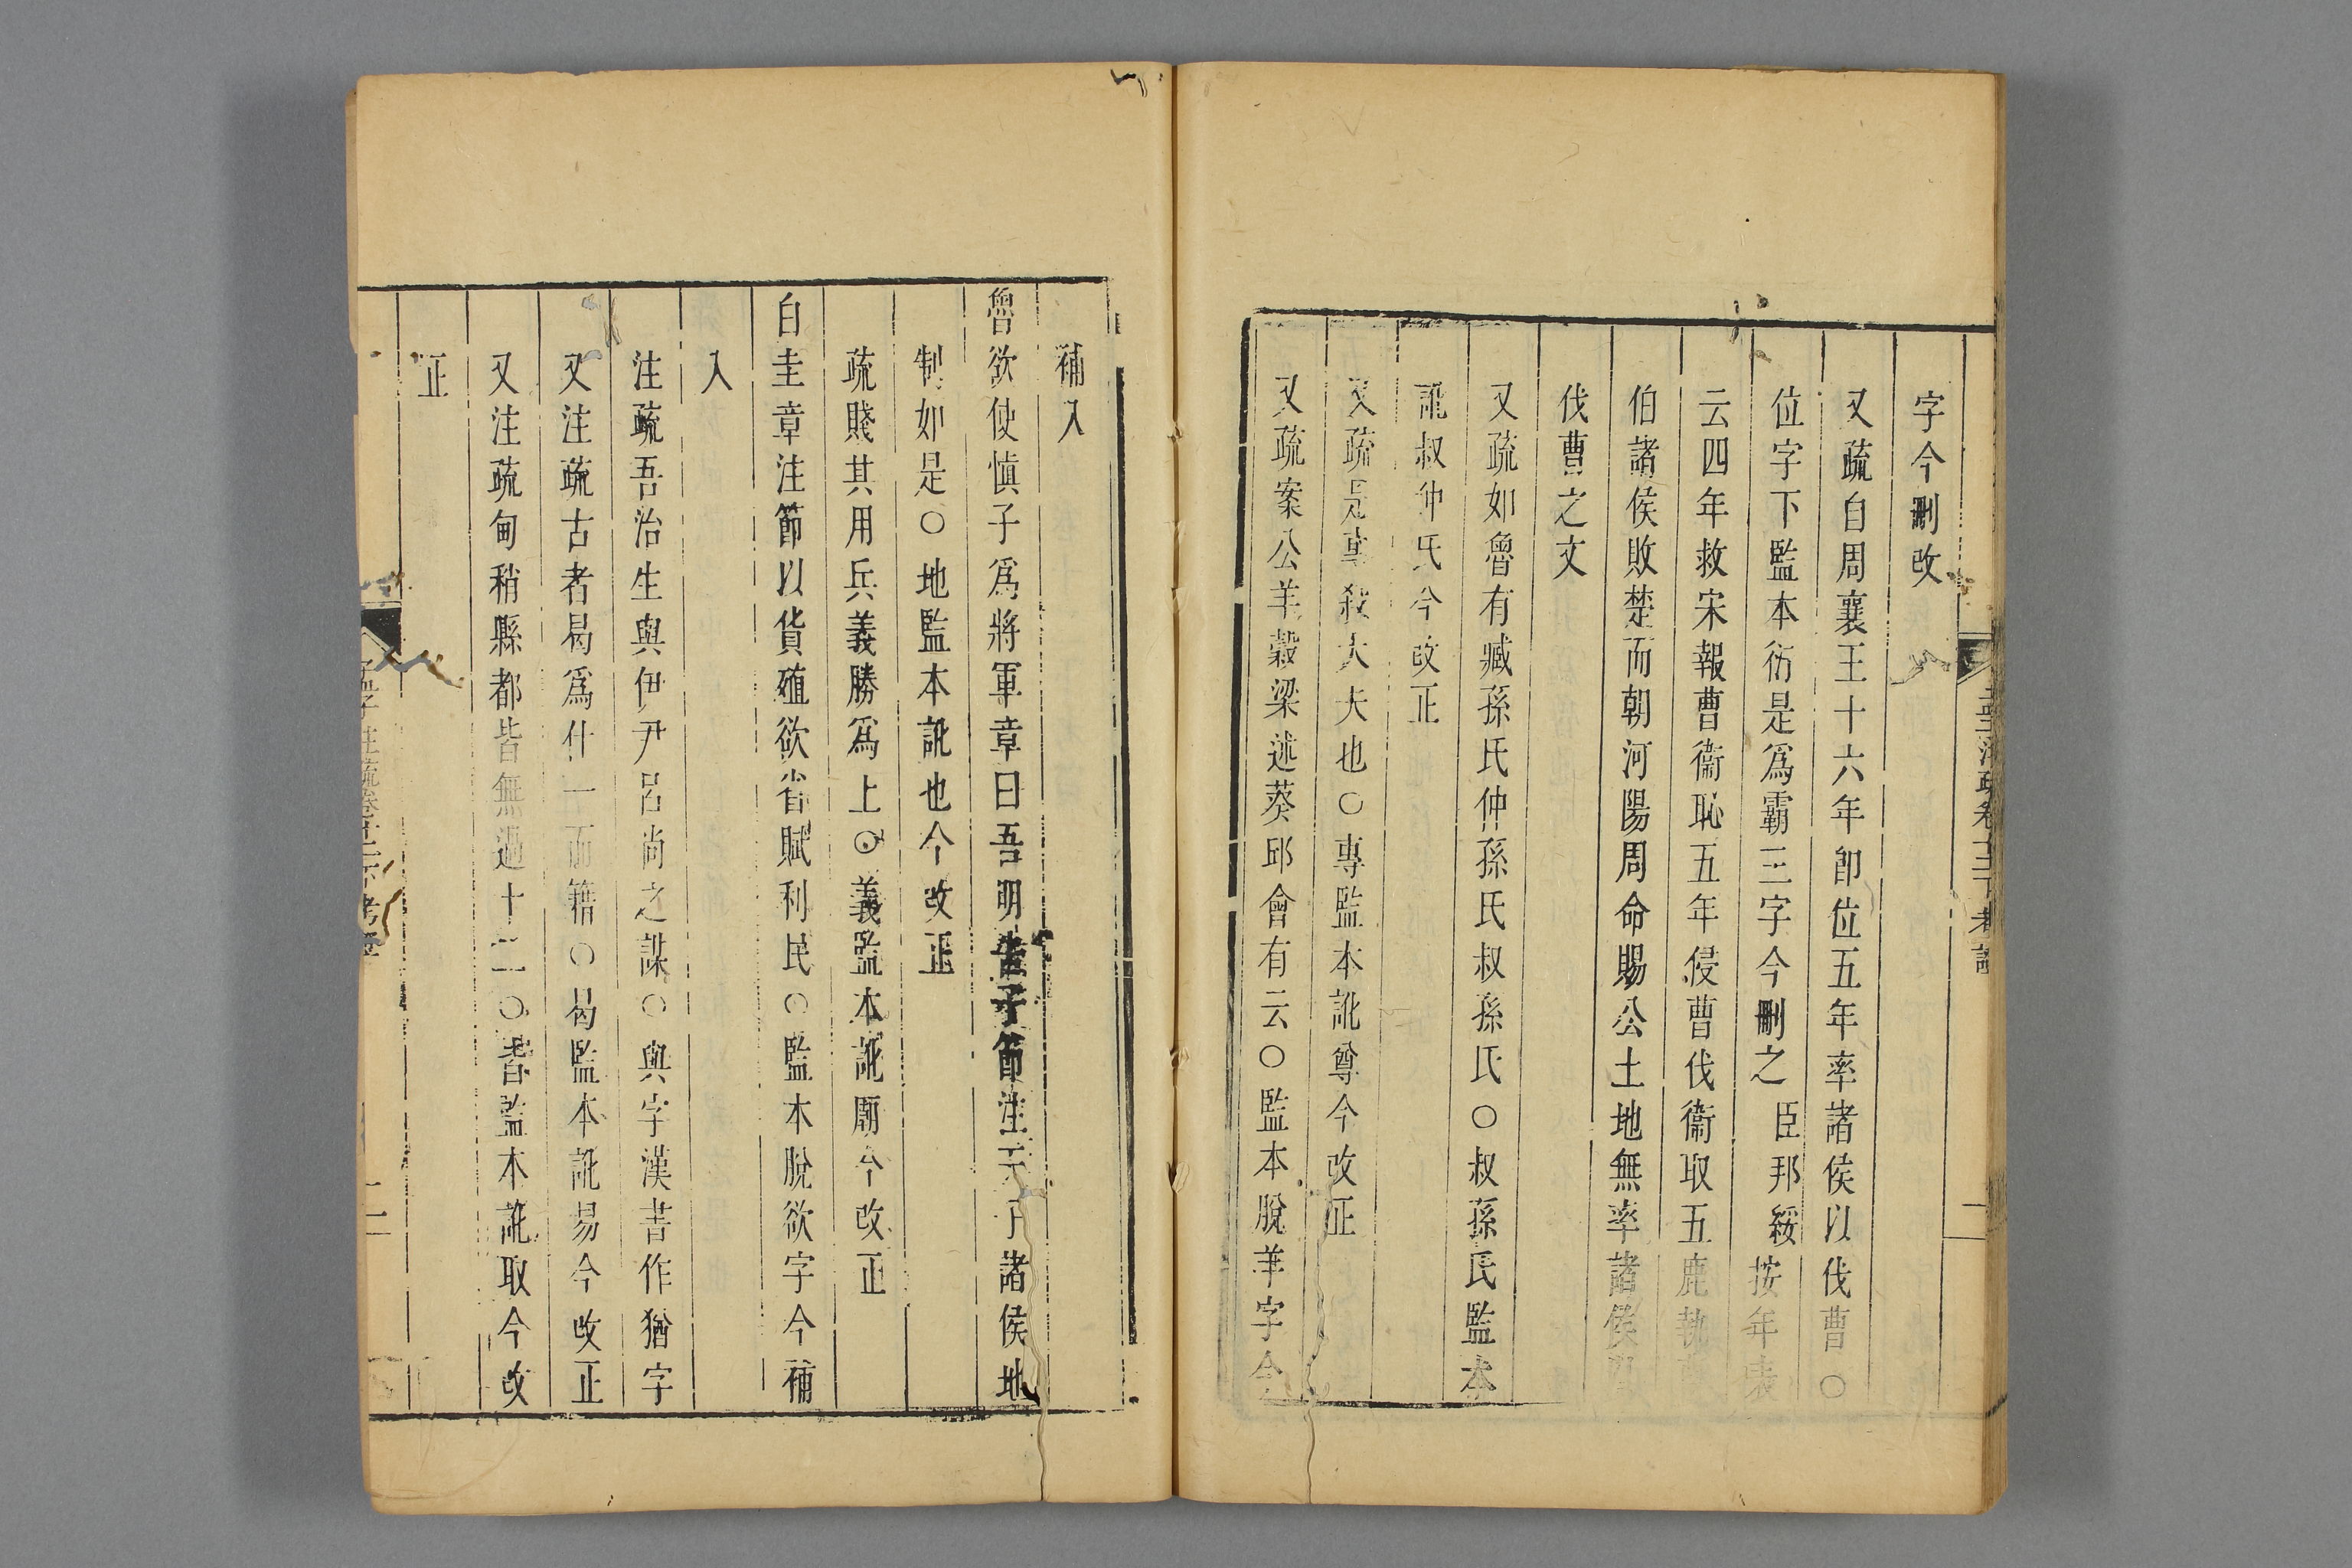 字今刪改
又疏自周襄王十六年即位五年率諸侯以伐曹○
位字下監本衍是爲霸三字今刪之臣邦綏按年表
云四年救宋報曹衞恥五年侵曹伐衞取五鹿執
伯諸侯敗楚而朝河陽周命賜公土地無率諸侯
伐曹之文
又疏如魯有臧孫氏仲孫氏叔孫氏○叔孫氏監本
訛叔仲氏今改正
又疏是專殺大夫也○專監本訛尊今改正
又疏案公羊穀梁述葵邱會有云○監本脫羊字今
補入
魯欲使愼子爲將軍章曰吾明告子節注天子諸侯地
制如是○地監本訛也今改正
疏賤其用兵義勝爲上○義監本訛廟今改正
白圭章注節以貨殖欲省賦利民○監本脫欲字今補
入
注疏吾治生與伊尹呂尚之謀○與字漢書作猶字
又注疏古者曷爲什一而籍○曷監本訛易今改正
又注疏甸稍縣都皆無過十二○皆監本訛取今改
正
孟子注疏卷十二下考證
二